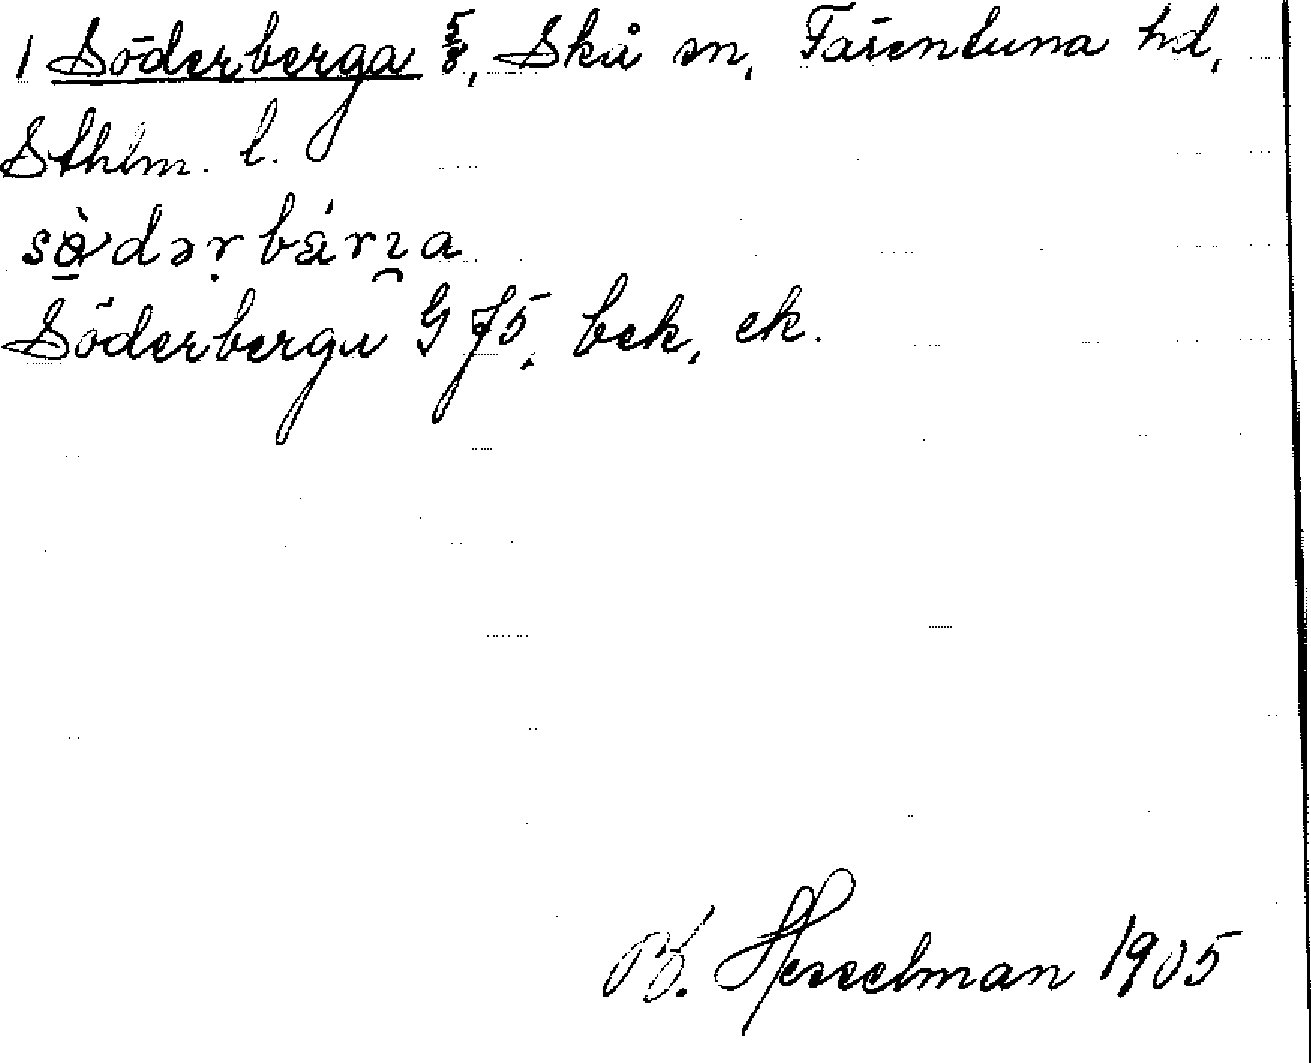 1 Söderberga 5/8, Skå sn, Färentuna hd,
Sthlm. l.
sö̀dərbärɿa
Söderberga G J5, bek, ek.
B. Hesselman 1905